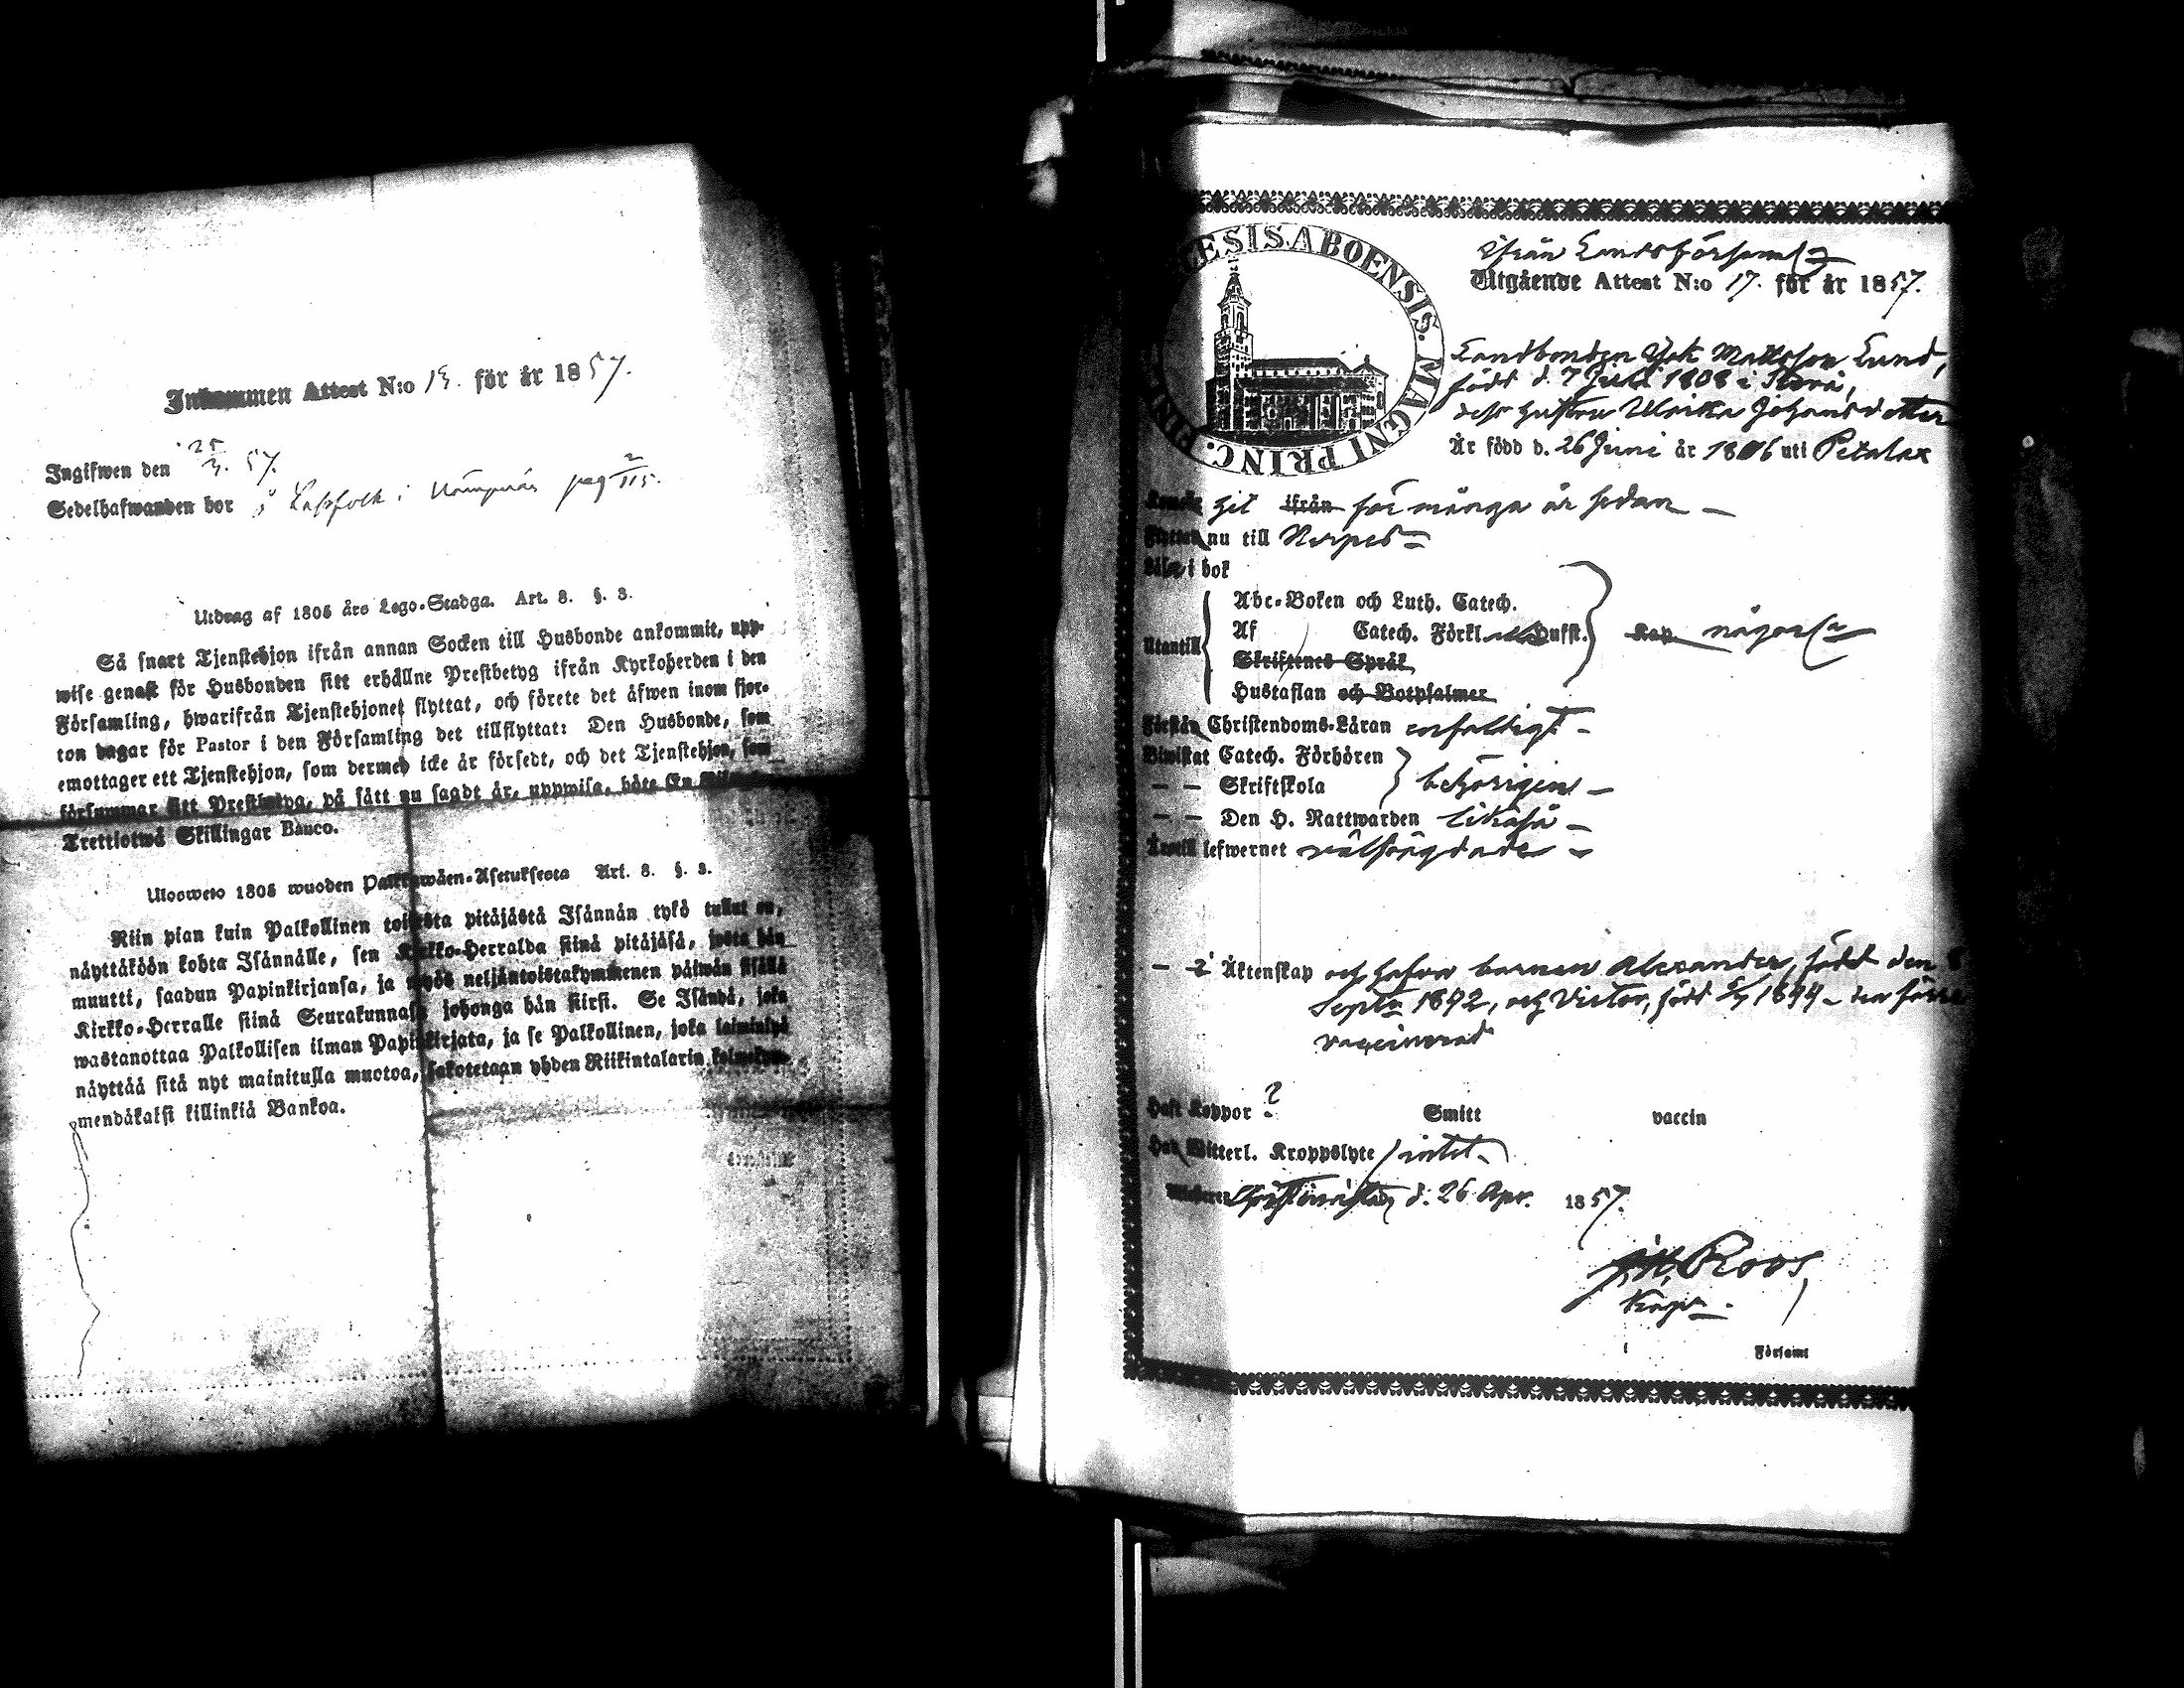 Inkommen Attest N:o 13. för år 1857.
Ingifwen den 25/3. 57.
Sedelhafwanden bor å Lassfolk i Nämpnäs pag 2/115.
Utdrag af 1805 års Lego-Stadga. Art. 8. §. 3.
Så snart Tjenstehjon ifrån annan Socken till Husbonde ankommit, upp-
wise genast för Husbonden sitt erhållne Prestbetyg ifrån Kyrkoherden i den
Församling, hwarifrån Tjenstehjonet flyttat, och förete det äfwen inom fjor-
ton dagar för Pastor i den Församling det tillflyttat: Den Husbonde, som
emottager ett Tjenstehjon, som dermed icke är försedt, och det Tjenstehjon, som
försummar sitt Prestbetyg, på sätt nu sagdt är, uppwisa, böte En
Trettiotwå Skillingar Banco.
Ulosweto 1805 wuoden Palkkawäen-Asetuksesta Art. 8. §. 3.
Niin pian kuin Palkollinen toisesta pitäjästä Isännän tykö tullut on,
näyttäköön kohta Isännälle, sen Kirkko-Herralda siinä pitäjäsä, josta hän
muutti, saadun Papinkirjansa, ja myös neljäntoistakymmenen päiwän sisällä
Kirkko-Herralle siinä Seurakunnasa johonga hän siirsi. Se Isändä, joka
wastanottaa Palkollisen ilman Papinkirjata, ja se Palkollinen, joka laiminlyö
näyttää sitä nyt mainitulla muotoa, sakotetaan yhden Riikintalarin kolmekym-
mendäkaksi killinkiä Bankoa.
DIOECESIS ABOENSIS. MAGNI PRINC. FINL.
ifrån Landsförsaml
Utgående Attest N:o 17. för år 1857.
Landbonden Isak Mattsson Lund,
född d. 7 Juli 1808 i Storå,
dess hustru Ulrika Johansdotter
Är född d. 26 Juni år 1806 uti Petalax
Komne hit ifrån för många år sedan –
Flytta nu till Nerpes –
Läsa i bok
Utantill
Abc-Boken och Luth. Catech.
Af Catech. Förkl. Hufst. Kap någorl
Skriftenes Språk
Hustaflan och Botpsalmer
Förstån Christendoms-Läran enfaldigt –
Biwistat Catech. Förhören
– – Skriftskola behörigen –
– – Den H. Nattwarden likaså –
Än till lefwernet välfrägdade –
– i Äktenskap och hafva barnen Alexander, född den 8
Septr 1842, och Victor, född 1844 – den förre
vaccinerad
Haft Koppor ? Smitt vaccin
Har Witterl. Kroppslyte intet –
Christinestad d. 26 Apr. 1857.
J. H. Roos,
Kapn.
Församl